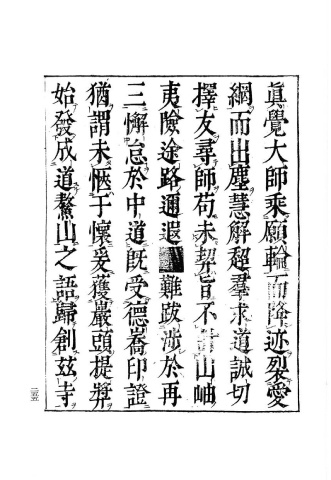 眞覺大師乘願輪而降迹裂愛
網而出塵慧解超羣求道誠切
擇友尋師苟未契旨不山岫
夷險途路邇遐難跋涉於再
三懈怠於中道既受德嶠印證
猶謂未愜于懷爰獲巖頭提奬
始發成道鰲山之語歸創玆寺
二五五